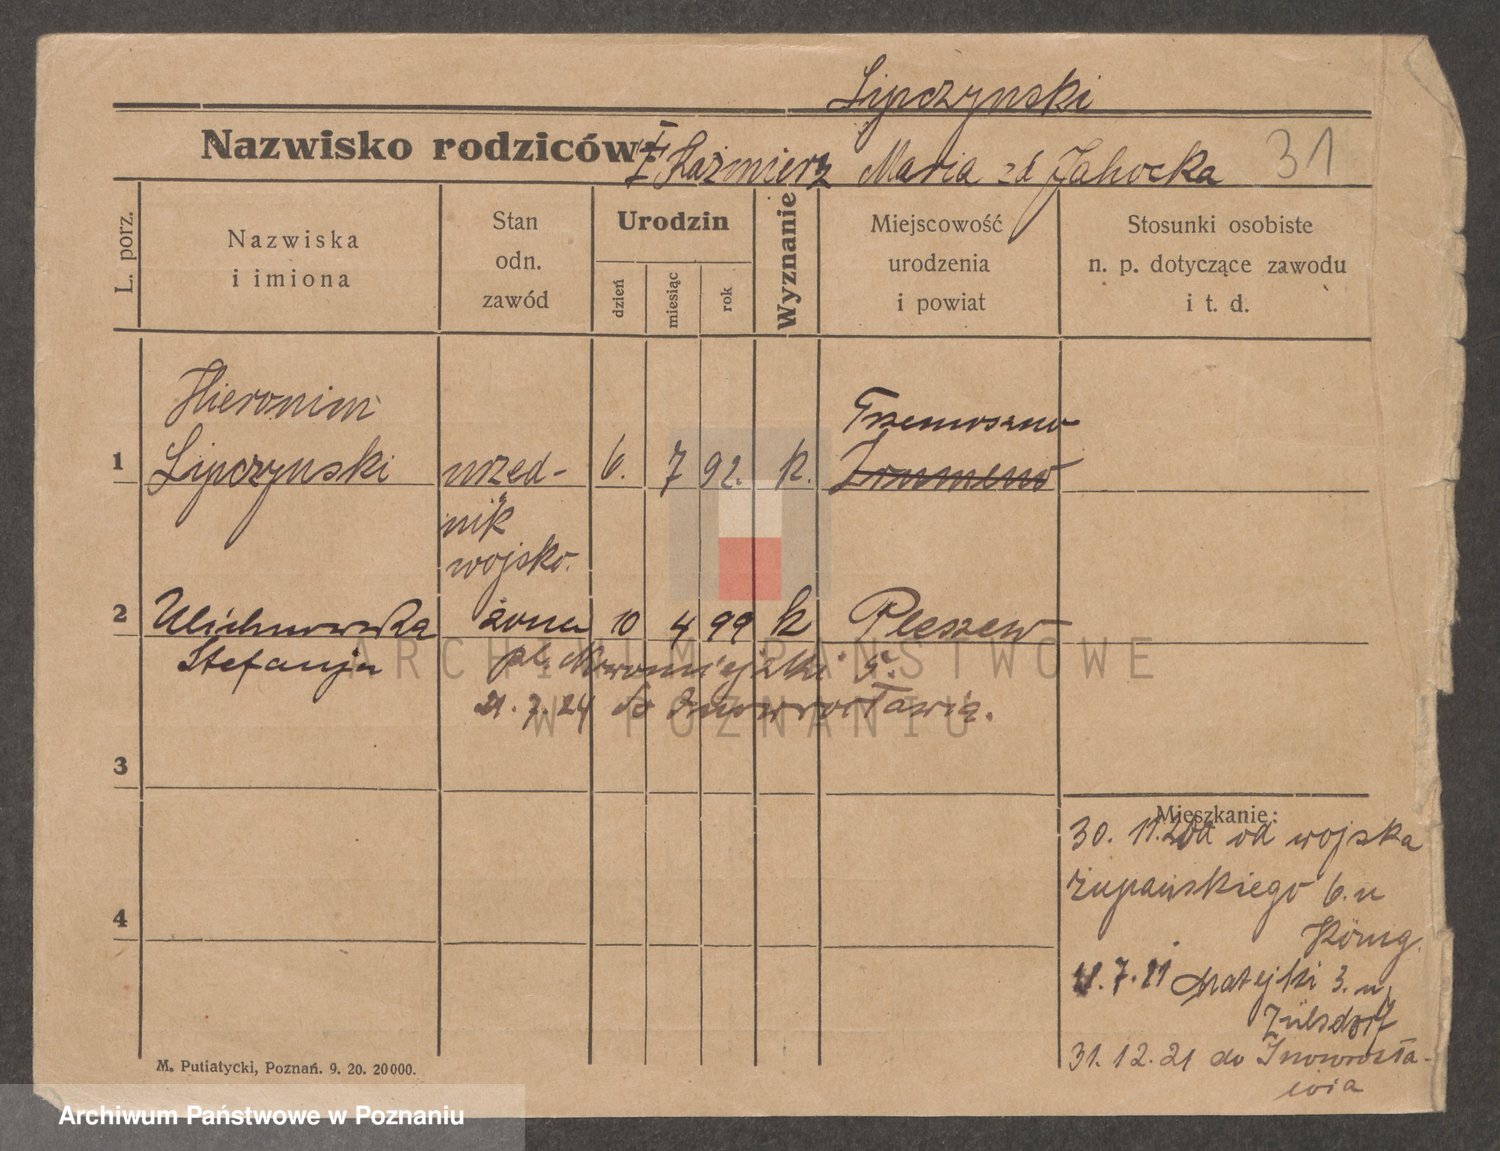 Lipczynski
Nazwisko rodziców Kaźmierz Maria zd Jahocka 31
L. porz.
Nazwiska
i imiona
Stan
odn.
zawód
Urodzin
dzień
miesiąc
rok
Wyznanie
Miejscowość
urodzenia
i powiat
Stosunki osobiste
n. p. dotyczące zawodu
i t. d.
Hieronim
Trzemoszno
1 Lipczynski urzed- 6. 7 92. k.
nik
wojsko.
2 Ulichnowska żona 10 4 99 k Pleszew
Stefanja pl. Nowomiejski 5.
21.7.24 do Inowrocławia.
3
Mieszkanie:
30. 11. 20 od wojska
Żupańskiego 6. u
4
König.
7.21 Matejki 3. u
Zülsdorf
31. 12. 21 do Inowrocła-
wia
M. Putiatycki, Poznań. 9. 20. 20000.
ARCHIWUM PAŃSTWOWE
W POZNANIU
Archiwum Państwowe w Poznaniu